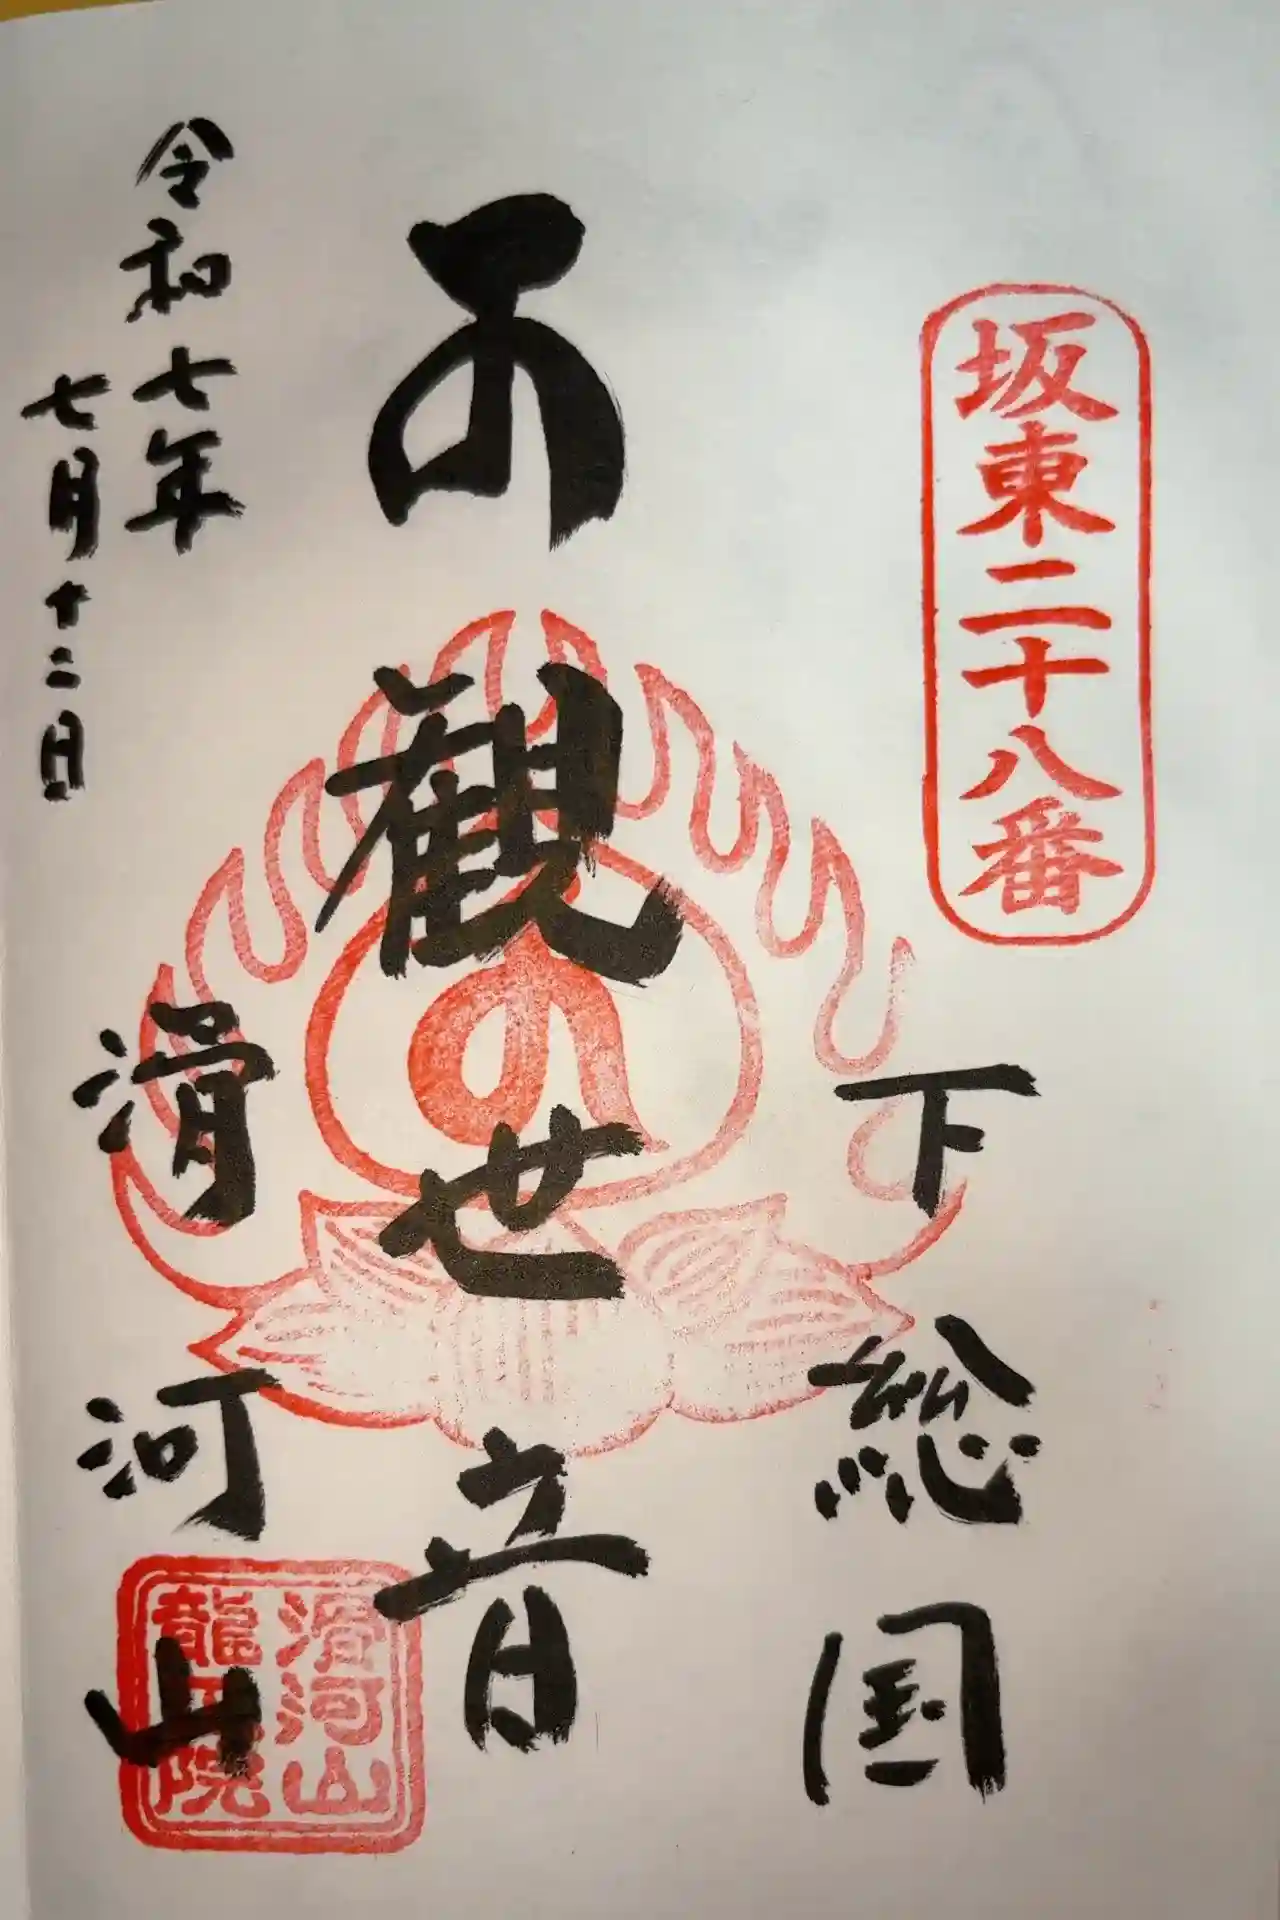 坂東二十八番
下総国
観世音
令和七年
七月十二日
滑河山
滑河山
龍正院